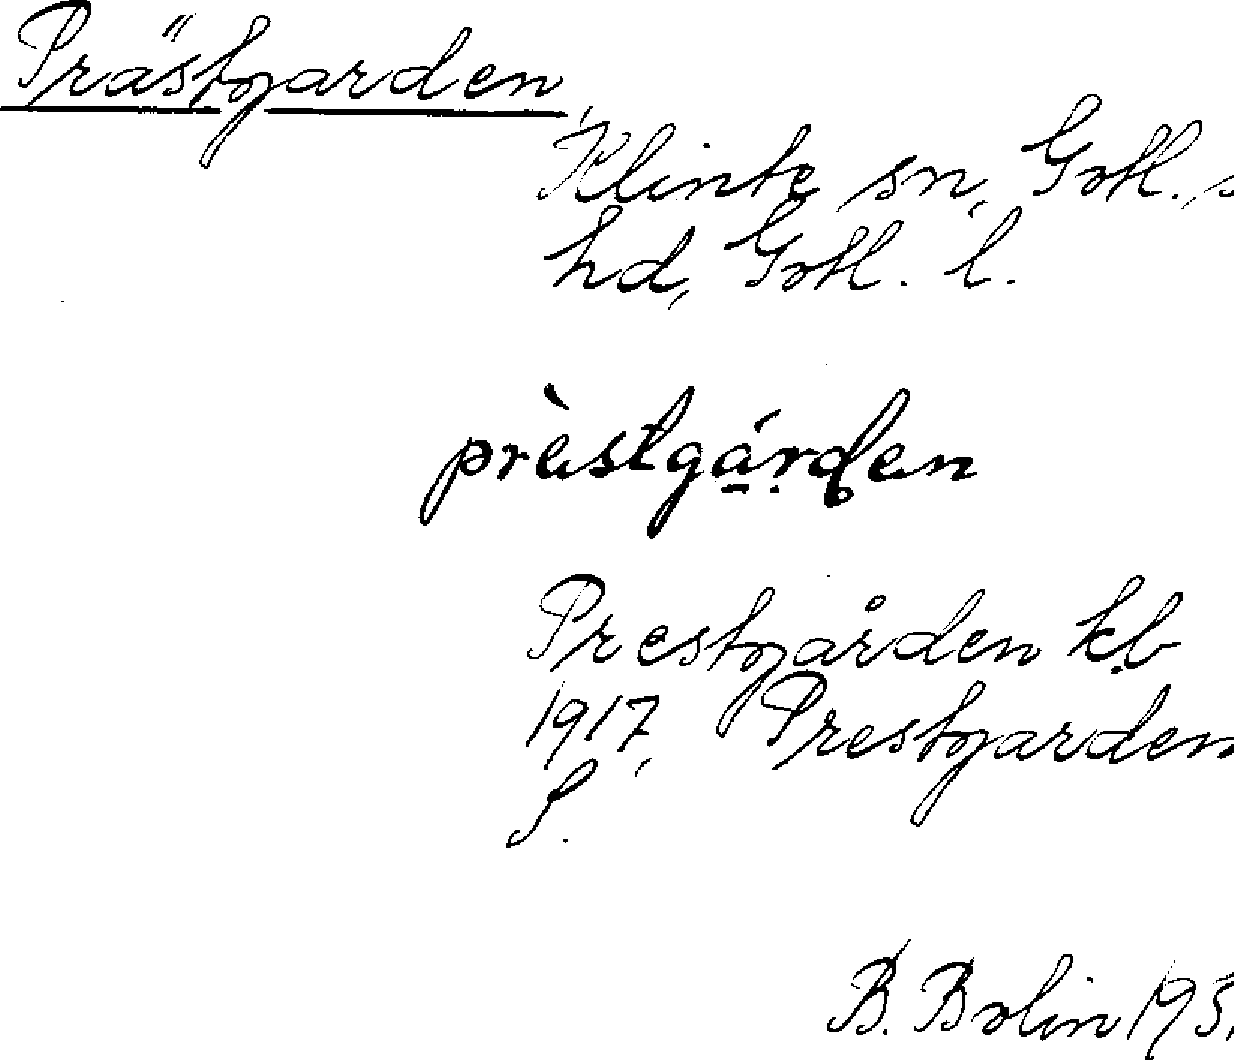 Prästgarden,
Klinte sn, Gotl. s
hd, Gotl. l.
prèstgá̱ṛden
Prestgården kb
1917, Prestgarden
J.
B. Bolin 193